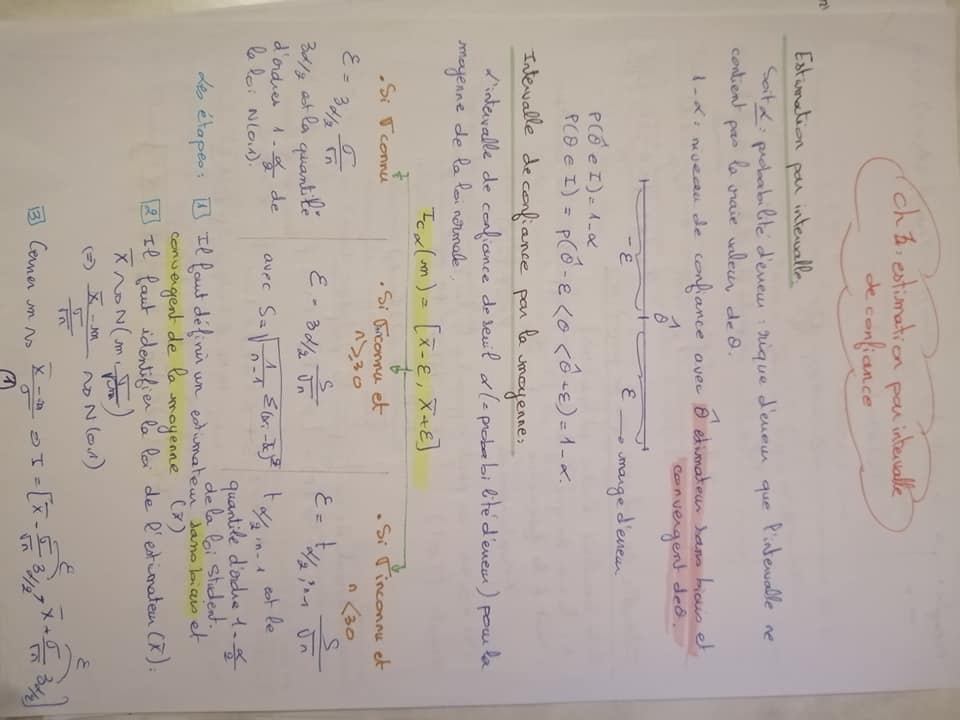 Ch 1: estimation par intervalle
de confiance
Estimation par intervalle:
Soit α: probabilité d'erreur: risque d'erreur que l'intervalle ne
contient pas la vraie valeur de θ.
1-α: niveau de confiance avec θ̂ estimateur sans biais et
convergent de θ.
θ̂
-ε ε → marge d'erreur
P(θ̂ ∈ I) = 1-α
P(θ ∈ I) = P(θ̂-ε < θ < θ̂+ε) = 1-α.
Intervalle de confiance par la moyenne:
L'intervalle de confiance de seuil α (= probabilité d'erreur) pour la
moyenne de la loi normale.
Icα(m) = [x̄-ε, x̄+ε]
. Si σ connu
ε = 3α/2 σ/√n
3α/2 est la quantité
d'ordres 1-α/2 de
la loi N(0,1).
. Si σ inconnu et
n ≥ 30
ε = 3α/2 S/√n
avec S = √(1/(n-1) Σ(xi-x̄)²)
. Si σ inconnu et
n < 30
ε = tα/2, n-1 S/√n
tα/2, n-1 est le
quantile d'ordre 1-α/2
de la loi Student.
Les étapes: 1 Il faut définir un estimateur sans biais et
convergent de la moyenne (x̄)
2 Il faut identifier la loi de l'estimateur (x̄).
x̄ ~> N(m, σ/√m)
(=) (x̄-m)/(σ/√n) ~> N(0,1)
3 Cerner m ~> (x̄-m)/σ ⇒ I = [x̄ - σ/√n 3α/2, x̄ + σ/√n 3α/2]
ε ε
1